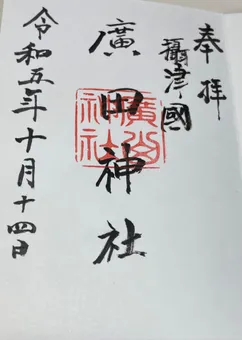 奉拝
攝津國
廣田神社
廣田
神社
令和五年十月十四日